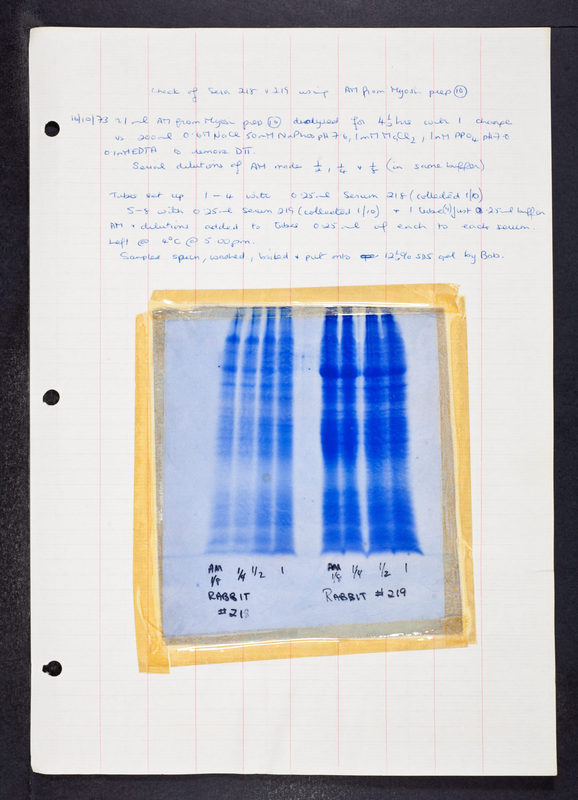 Check of Sera 218 + 219 using AM from Myosin prep 10
16/10/73 ml AM from Myosin prep dialysed for 4½ hrs with 1 change
vs 200ml 0.6M NaCl 50mM NaPhos pH 7.6, 1mM MgCl2, 1mM pH 7.0
0.1mM EDTA to remove DTT.
Serial dilutions of AM made ½, ¼ + ⅛ (in same buffer)
Tubes set up 1 - 4 with 0.25ml Serum 218 (collected 1/10)
5-8 with 0.25ml Serum 219 (collected 1/10) + 1 tube (9) just 0.25ml buffer
AM + dilutions added to tubes 0.25ml of each to each serum.
Left @ 4°C @ 5.00pm.
Samples spun, washed, boiled + put onto 12½% SDS gel by Bob.
AM 1/8 1/4 1/2 1
RABBIT
#218
AM 1/8 1/4 1/2 1
RABBIT #219